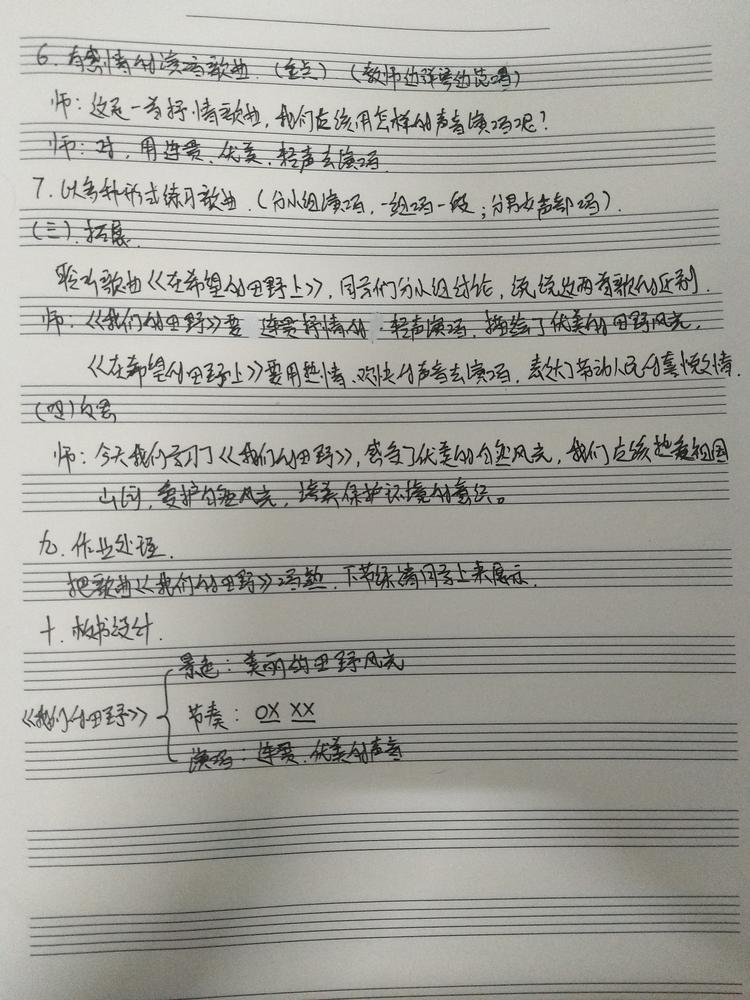 6. 有感情的演唱歌曲.(重点)(教师边弹琴边范唱)
师:这是一首抒情歌曲,我们应该用怎样的声音演唱呢?
师:对,用连贯、优美、轻声去演唱.
7. 以多种形式练习歌曲.(分小组演唱,一组唱一段;分男女声部唱).
(三).拓展.
聆听歌曲《在希望的田野上》,同学们分小组讨论,说说这两首歌的区别.
师:《我们的田野》要 连贯抒情的 轻声演唱,描绘了优美的田野风光.
《在希望的田野上》要用热情、欢快的声音去演唱,表达了劳动人民的喜悦之情.
(四)
师:今天我们学习了《我们的田野》,感受了优美的自然风光,我们应该热爱祖国
山河,爱护自然风光,培养保护环境的意识。
九. 作业处理.
把歌曲《我们的田野》唱熟.下节课请同学上来展示.
十. 板书设计.
景色:美丽的田野风光
《我们的田野》
节奏:0X XX
演唱:连贯、优美的声音